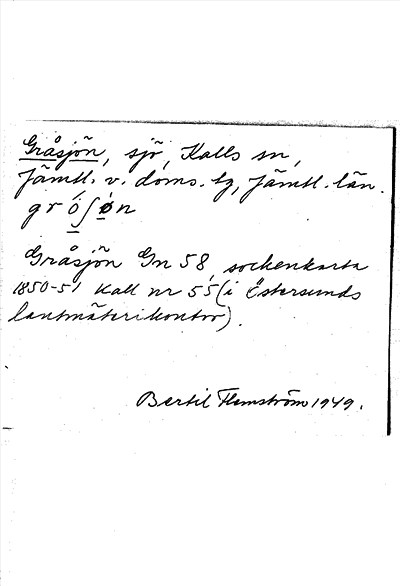 Gråsjön, sjö, Kalls sn,
Jämtl. v. doms. tg, Jämtl. län.
Gråsjön Gn 58, sockenkarta
1850-51 Kall nr 55 (i Östersunds
lantmäterikontor).
Bertil Flemström 1949.